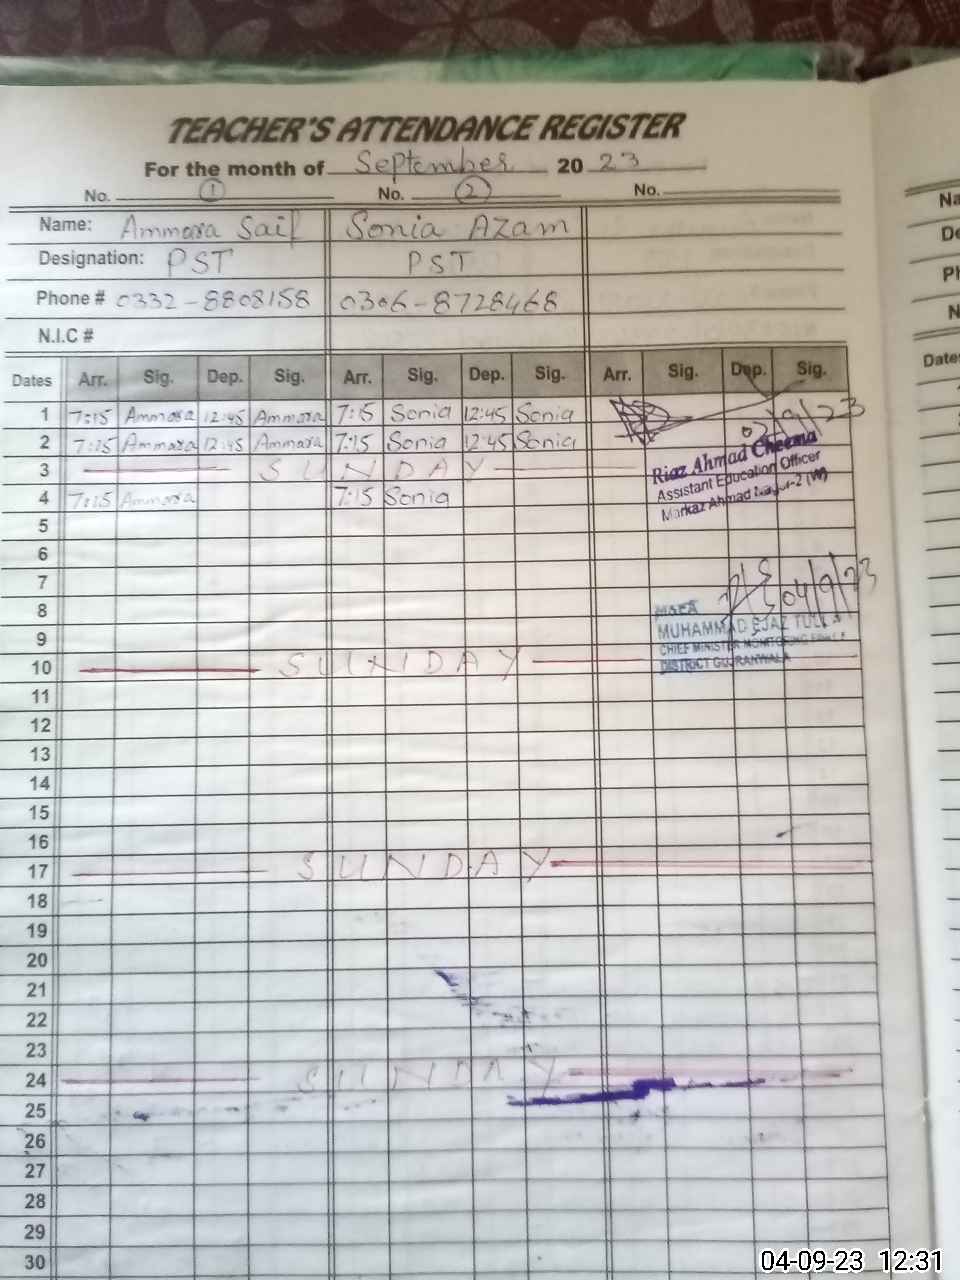 TEACHER'S ATTENDANCE REGISTER
For the month of September 20 23
No. 1 No. 2 No.
Name: Ammara Saif Sonia Azam
Designation: PST PST
Phone # 0332-8808158 0306-8728468
N.I.C #
Dates Arr. Sig. Dep. Sig. Arr. Sig. Dep. Sig. Arr. Sig. Dep. Sig.
1 7:15 Ammara 12:45 Ammara 7:15 Sonia 12:45 Sonia
2 7:15 Ammara 12:45 Ammara 7:15 Sonia 12:45 Sonia
Riaz Ahmad Cheema
3 SUNDAY
Assistant Education Officer
4 7:15 Ammara 7:15 Sonia
Markaz Ahmad Nagar-2 (W)
5
6
7
04/9/23
8
MUHAMMAD EJAZ
9
CHIEF MINISTER MONITORING
10 SUNDAY
DISTRICT GUJRANWALA
11
12
13
14
15
16
17 SUNDAY
18
19
20
21
22
23
24 SUNDAY
25
26
27
28
29
30
Na
De
Ph
N
Dates
04-09-23 12:31